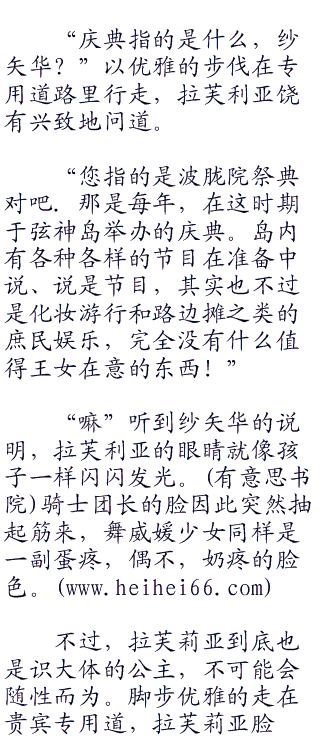 “庆典指的是什么，纱
矢华？”以优雅的步伐在专
用道路里行走，拉芙利亚饶
有兴致地问道。
“您指的是波胧院祭典
对吧．那是每年，在这时期
于弦神岛举办的庆典。岛内
有各种各样的节目在准备中
说、说是节目，其实也不过
是化妆游行和路边摊之类的
庶民娱乐，完全没有什么值
得王女在意的东西！”
“嘛”听到纱矢华的说
明，拉芙利亚的眼睛就像孩
子一样闪闪发光。(有意思书
院)骑士团长的脸因此突然抽
起筋来，舞威媛少女同样是
一副蛋疼，偶不，奶疼的脸
色。(www.heihei66.com)
不过，拉芙莉亚到底也
是识大体的公主，不可能会
随性而为。脚步优雅的走在
贵宾专用道，拉芙莉亚脸